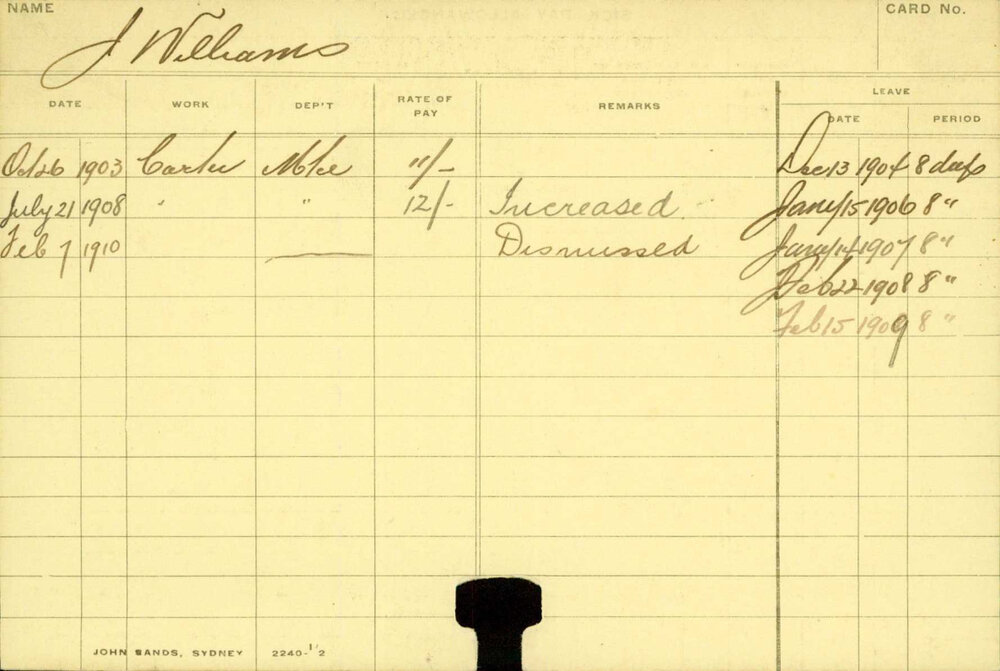 NAME
CARD No.
J Williams
DATE WORK DEP'T RATE OF PAY REMARKS LEAVE
DATE PERIOD
Oct 26 1903 Carter Mkt 11/- Dec 13 1904 8 days
July 21 1908 " " 12/- Increased Jany 15 1906 8 "
Feb 7 1910 Dismissed Jany 14 1907 8 "
Feb 22 1908 8 "
Feb 15 1909 8 "
JOHN SANDS, SYDNEY 2240-1/2